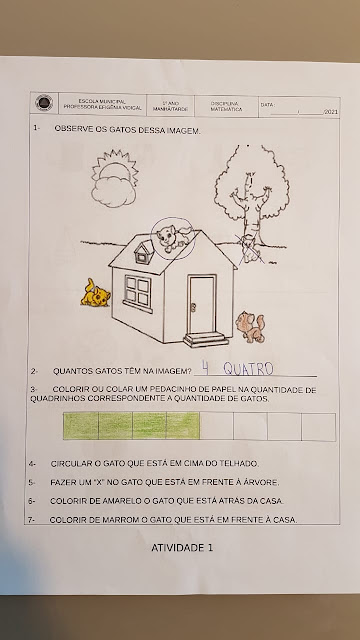 ESCOLA MUNICIPAL
PROFESSORA EFIGÊNIA VIDIGAL
1º ANO
MANHÃ/TARDE
DISCIPLINA:
MATEMÁTICA
DATA :
____/____/2021
1- OBSERVE OS GATOS DESSA IMAGEM.
2- QUANTOS GATOS TÊM NA IMAGEM? 4 QUATRO
3- COLORIR OU COLAR UM PEDACINHO DE PAPEL NA QUANTIDADE DE
QUADRINHOS CORRESPONDENTE A QUANTIDADE DE GATOS.
4- CIRCULAR O GATO QUE ESTÁ EM CIMA DO TELHADO.
5- FAZER UM "X" NO GATO QUE ESTÁ EM FRENTE À ÁRVORE.
6- COLORIR DE AMARELO O GATO QUE ESTÁ ATRÁS DA CASA.
7- COLORIR DE MARROM O GATO QUE ESTÁ EM FRENTE À CASA.
ATIVIDADE 1